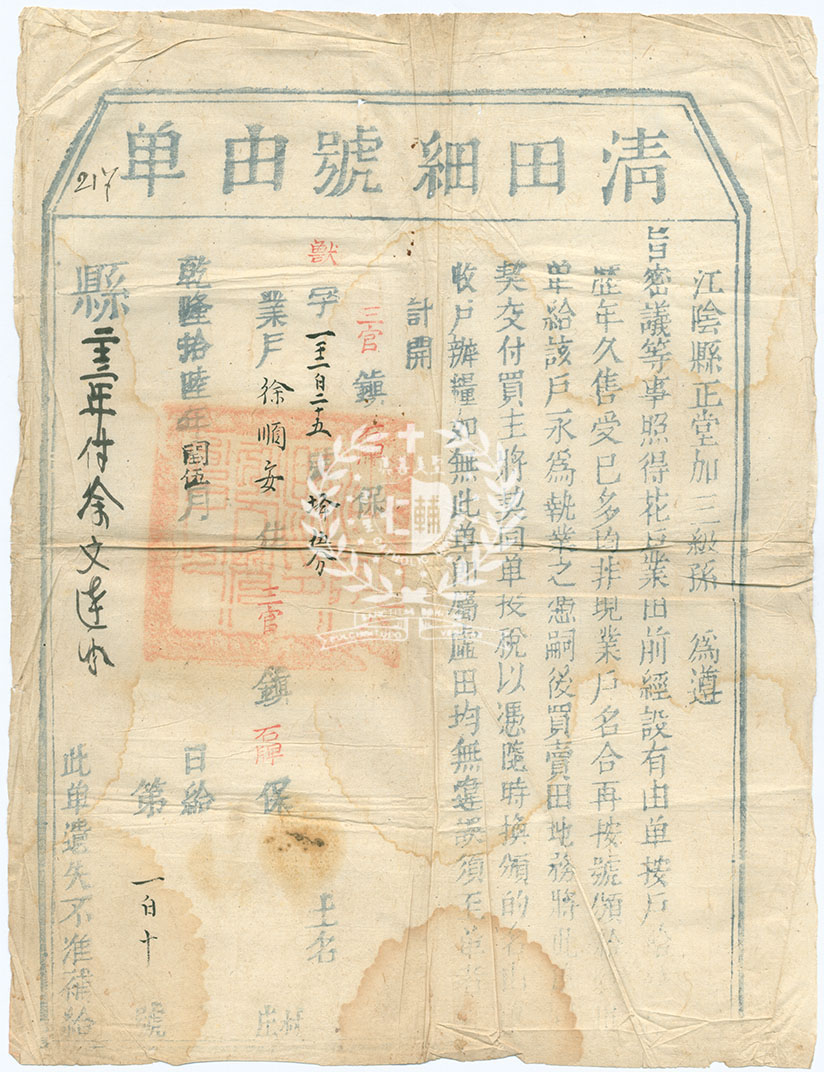 清田細號由单
217
江陰縣正堂加三級孫 為遵
旨密議等事照得花戶業田前經設有由单按戶
歷年久售受已多均非現業戶名合再按號頒給
单給該戶永為執業之憑嗣後買賣田地務將此
契交付買主將契同单投稅以憑隨時換頒的名由
收戶辦糧如無此单即屬虛田均無違悞須至单者
計開
三官鎮 保 土名
獸字一千一百二十五
業戶徐順安住三官鎮石牌保 村庄
乾隆拾陸年閏伍月 日給
縣 第一百十號
年付余文達
此单遺失不准補給